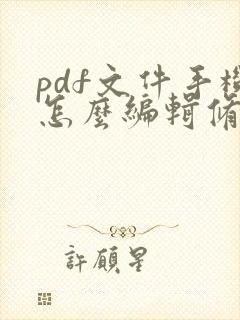 pdf文件手機
怎麼編輯修
許願星